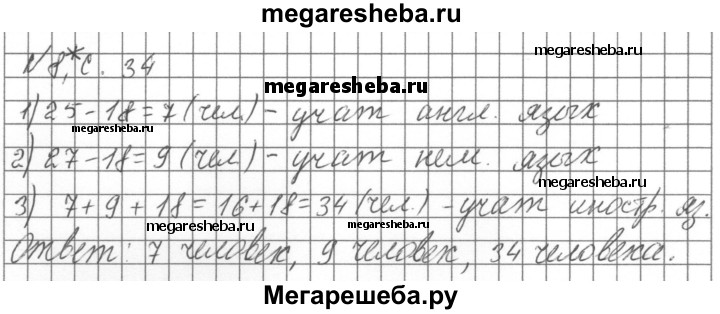 megaresheba.ru
№ 8,* с. 34
megaresheba.ru
megaresheba.ru
1) 25 - 18 = 7 (чел.) - учат англ. язык
megaresheba.ru
2) 27 - 18 = 9 (чел.) - учат нем. язык
megaresheba.ru
3) 7 + 9 + 18 = 16 + 18 = 34 (чел.) - учат иностр. яз.
megaresheba.ru
Ответ: 7 человек, 9 человек, 34 человека.
Мегарешеба.ру